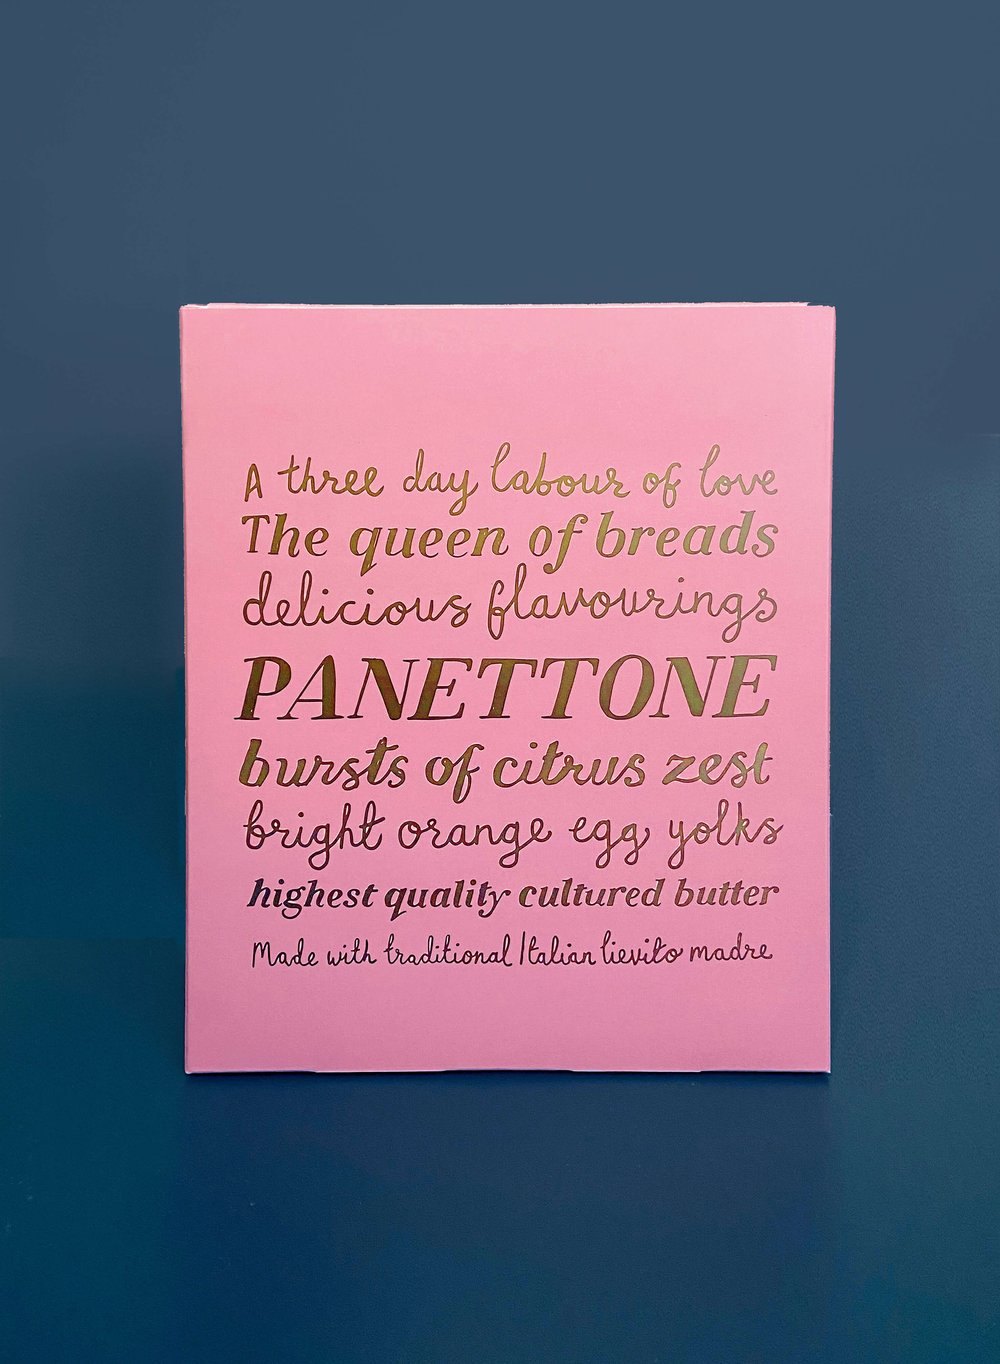 A three day labour of love
The queen of breads
delicious flavourings
PANETTONE
bursts of citrus zest
bright orange egg yolks
highest quality cultured butter
Made with traditional Italian lievito madre